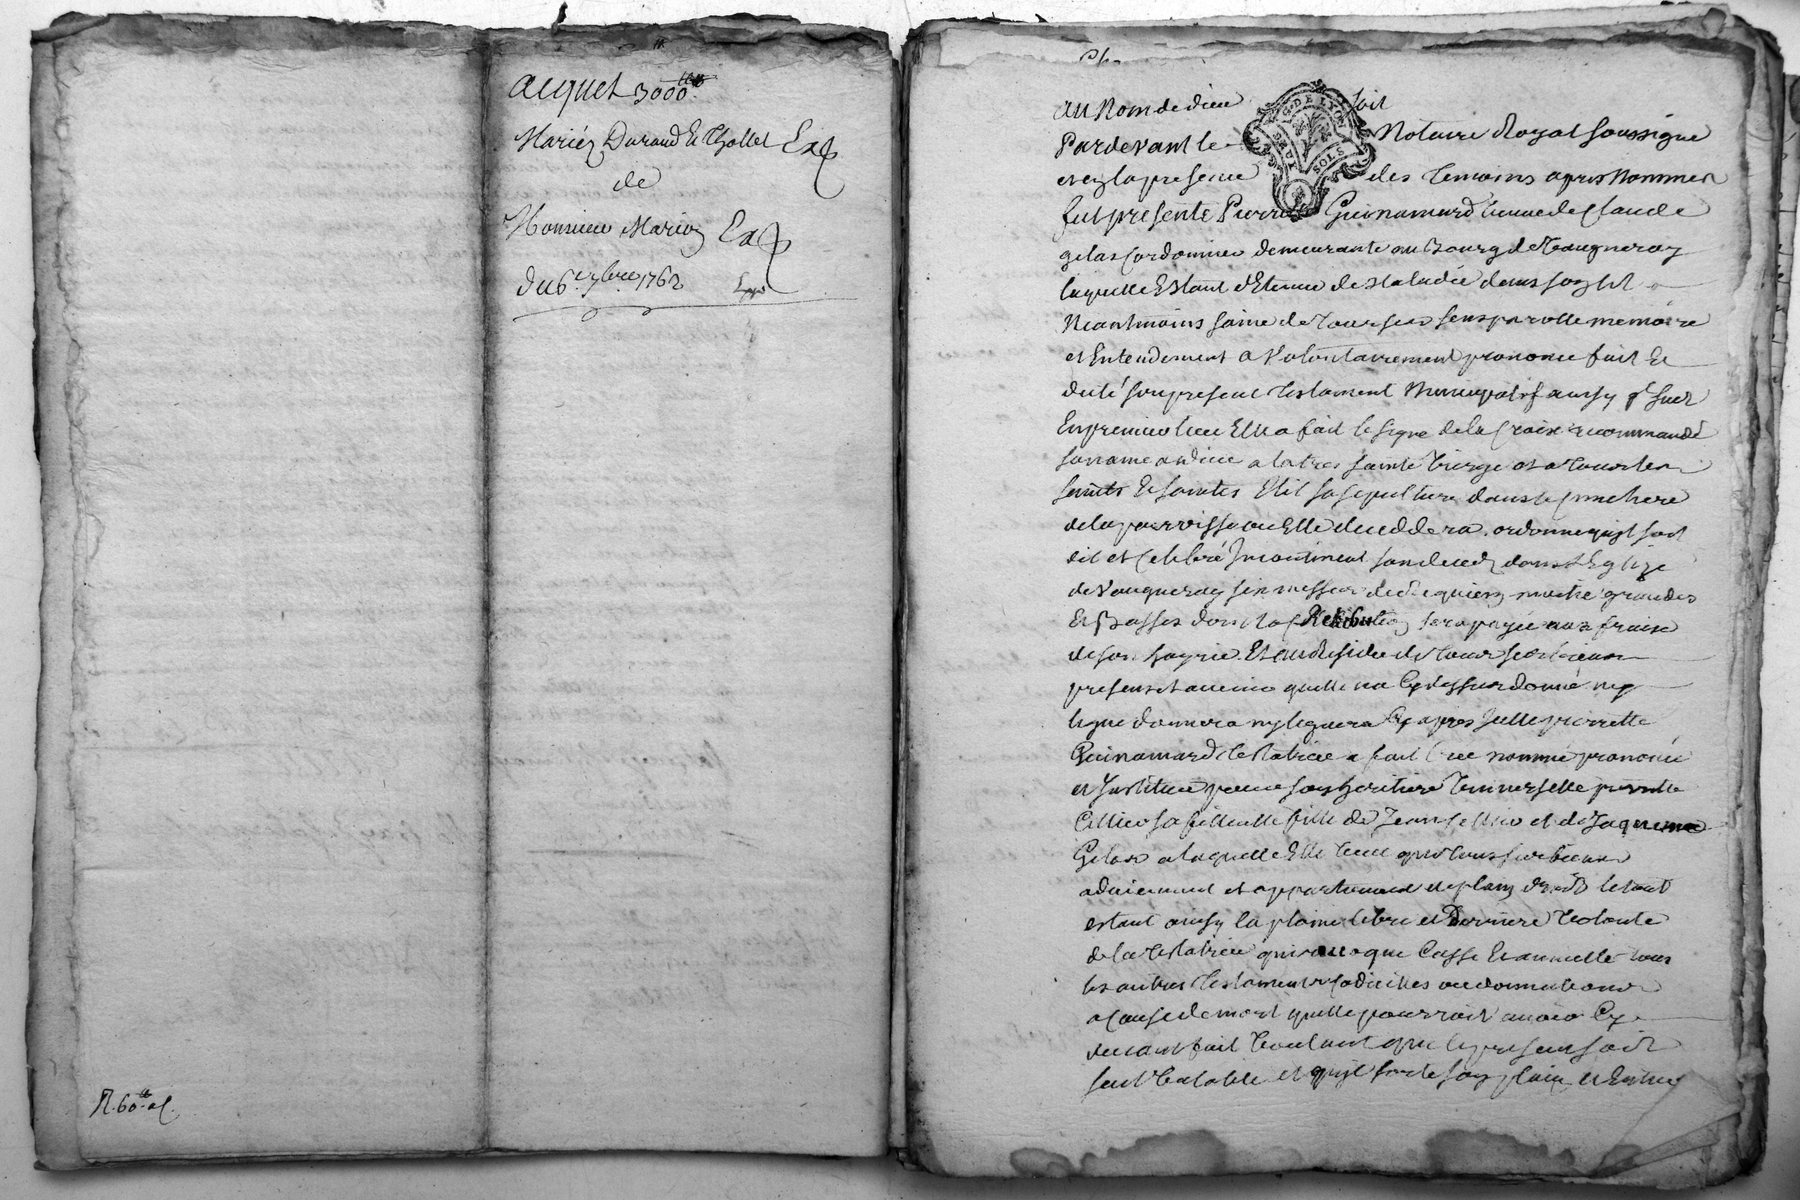 acquet 3000ᵗᵗ
Mariéz Durand & Thollet Exp
de
Monsieur Marion Exp
du 6.e 7bre 1762 Exp
R. 60
G. DE LYON
SOLS
au Nom de dieu soit
Pardevant le Notaire Royal soussigné
et en la presence des temoins apres nommer
fut presente Pierrette Guinamard veuve de Claude
gelas Cordonnier demeurante au Bourg de Vaugneray
laquelle Estant detenue de Maladie dans son lit
Neantmoins saine de tour ses sens parolle memoire
et Entendement a volontairement prononcé fait Et
dicté son present testament Nuncupatif ainsy qu'il suit
En premier lieu Elle a fait le signe de la Croix recommandé
son ame a dieu a la tres sainte vierge et a tour les
saints & saintes Elit sa sepulture dans le cimetiere
de la parroisse ou Elle deceddera. ordonne quil soit
dit et Celebré Incontinent son deced dans l'Eglize
de Vaugneray six messes de Requiem moitié grandes
Et Basses dont la Retribution sera payée aux fraix
de son hoyrie. Et au residu de tour ses biens
presens et avenir quelle na Cy dessus donné ny
legué donnera ny leguera Cy apres Jcelle pierrette
Guinamard testatrice a fait Créé nommé prononcé
et Jnstitué pour son heritiere Universelle pierrette
Cellier sa filleulle fille de Jean Cellier et de Jaquema
Gelas a laquelle Elle veut que tous ses biens
adviennent et appartiennent de plain droit le tout
estant ainsy la plaine libre et Derniere volonté
de la testatrice qui revoque Casse Et annulle tous
les autres testaments Codicilles ou donnations
a Cause de mort quelle pourroit avoir Cy
devant fait voulant que le present soit
seul valable et quil sorte son plain et Entier